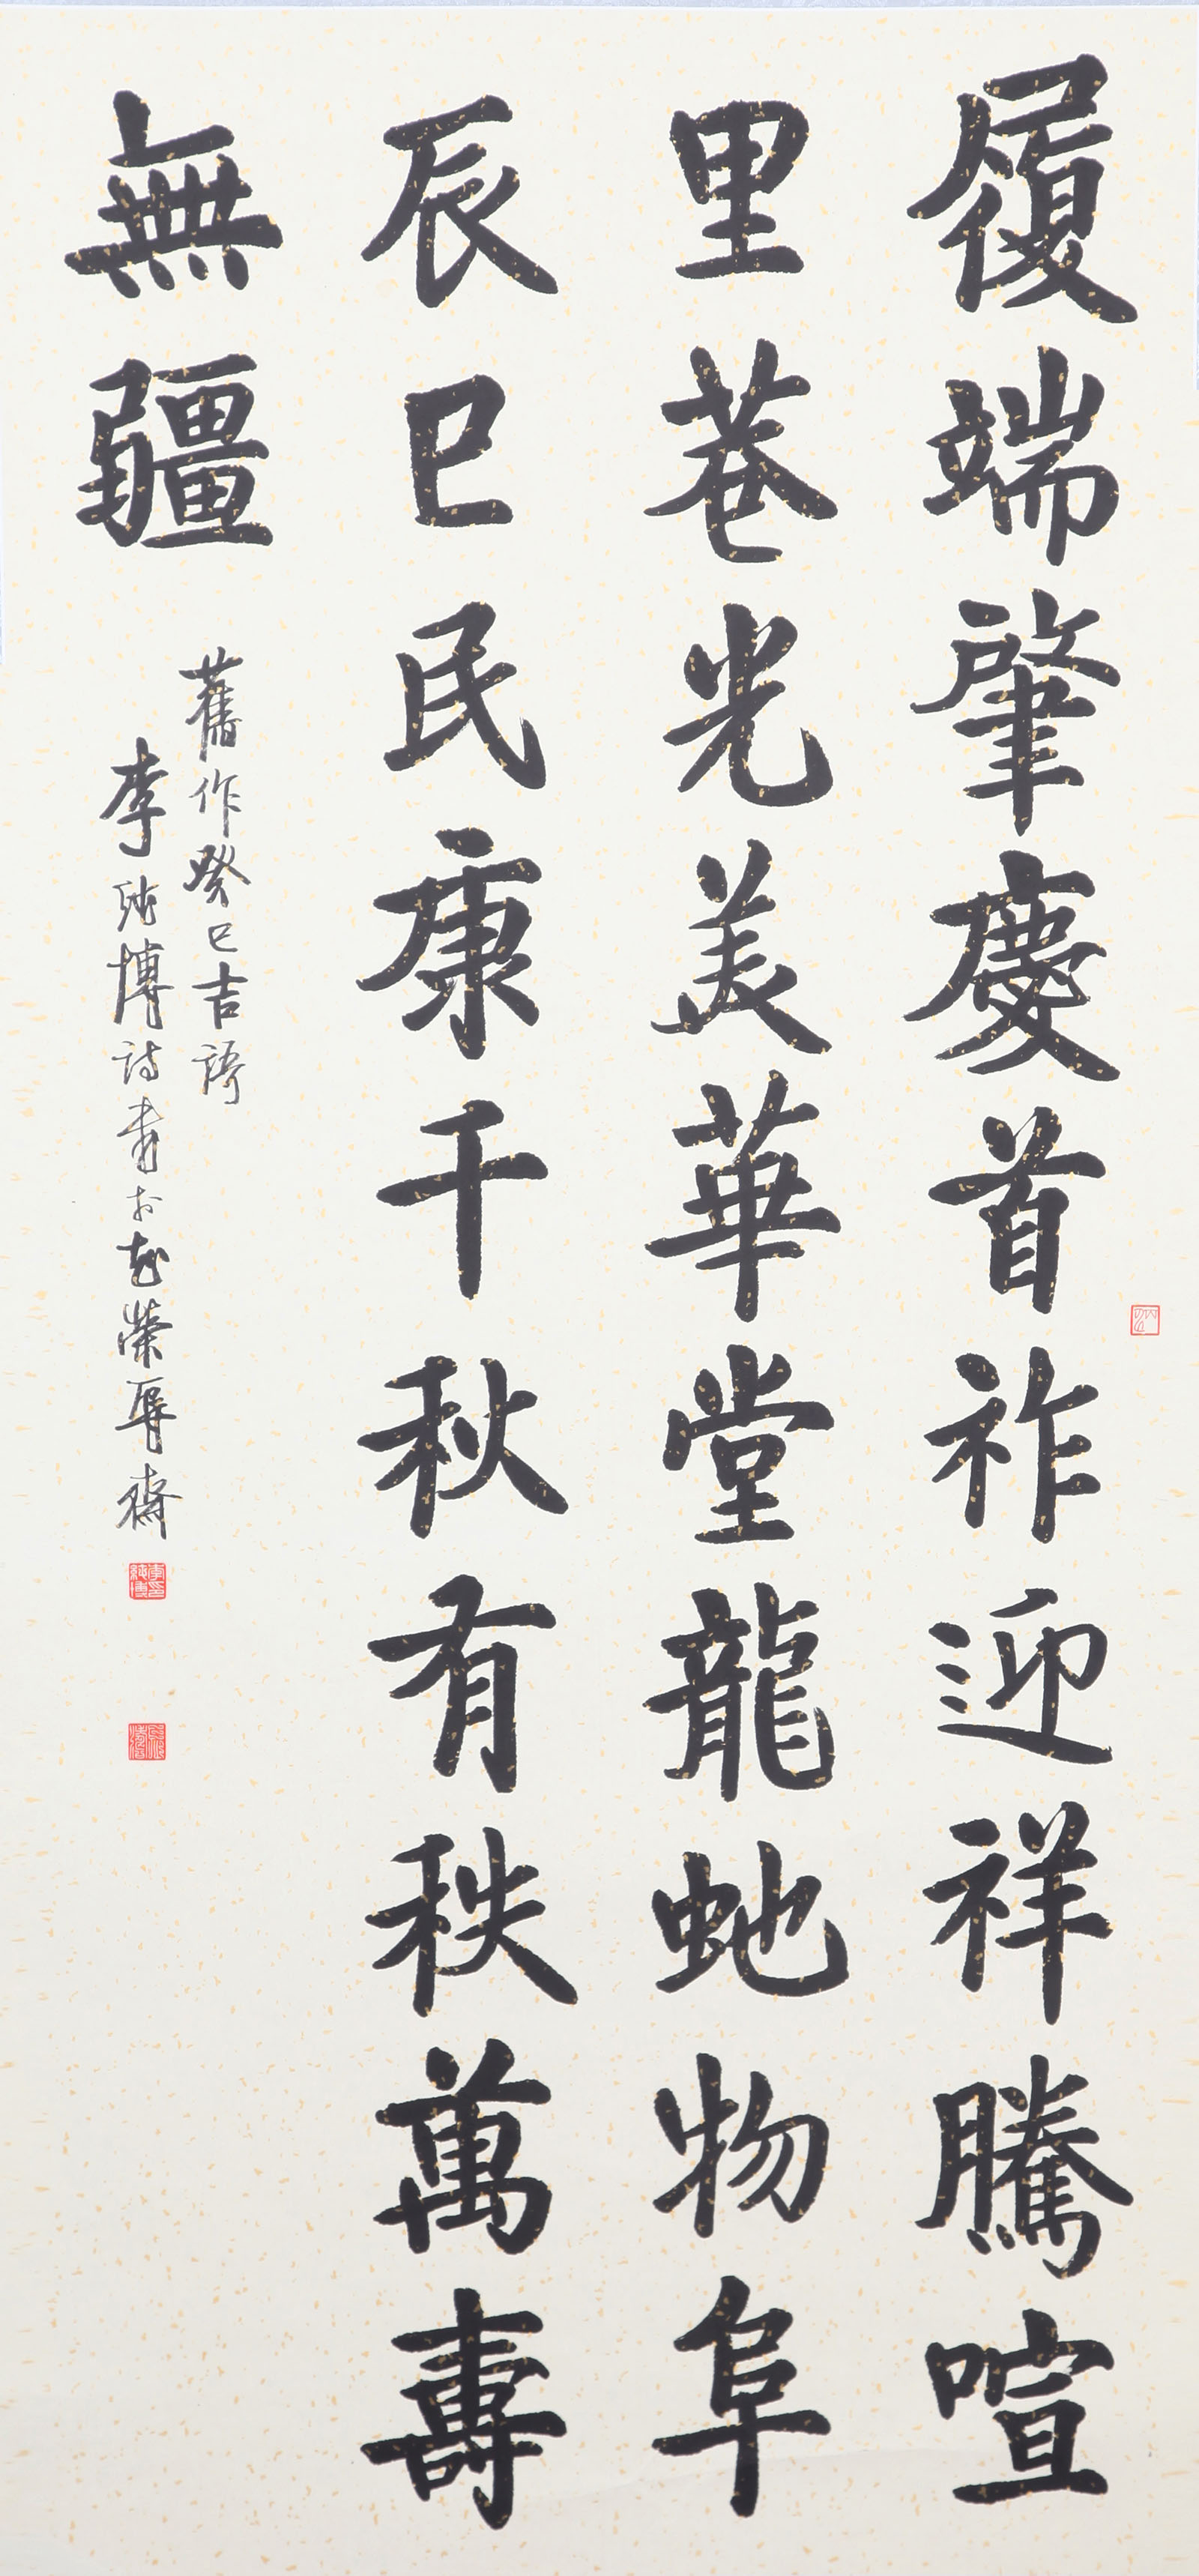 履端肇慶首祚迎祥騰喧
里巷光美華堂龍虵物阜
辰巳民康千秋有秩萬壽
無疆
舊作癸巳吉語
李純博詩書於忘榮辱齋